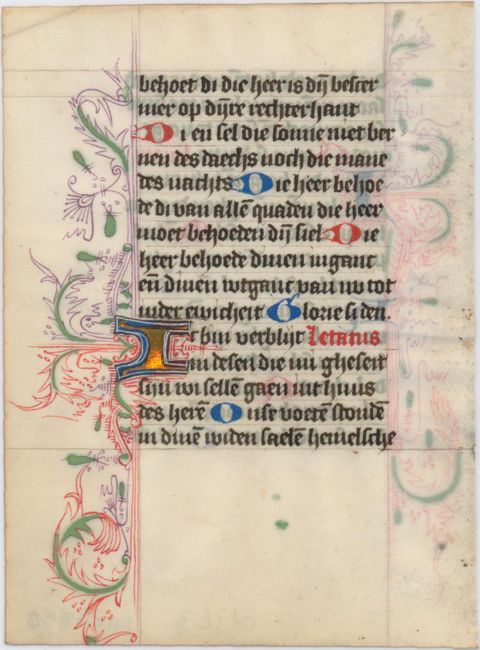 behoet di die heer is dÿ bescer
mer op dÿre rechterhant
Di en sel die sonne niet ber
nen des daechs noch die mane
des nachts Die heer behoe
de di van allē quaden die heer
moet behoeden dÿ siel Die
heer behoede dinen inganc
eñ dinen wtganc van nu tot
in der ewicheit Glorie si den.
Ic bin verblijt Letatus
in desen die mi gheseit
sijn wi sellē gaen int huus
des herē Onse voetē stondē
in dinē widen saelē hemelsche